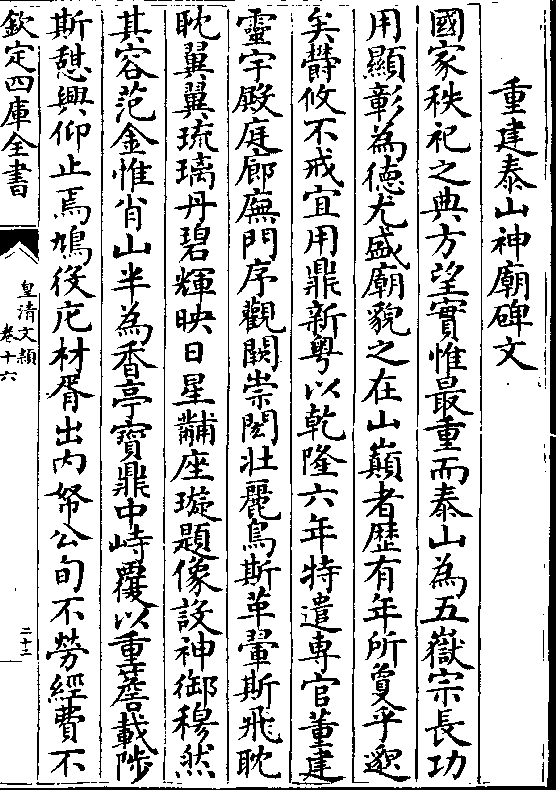 重建泰山神廟碑文
國家秩祀之典方望實惟最重而泰山為五嶽宗長功
用顯彰為德尤盛廟貌之在山巔者歴有年所夐乎邈
矣欎攸不戒宜用鼎新粤以乾隆六年特遣専官董建
靈宇殿庭廊廡門序觀闕崇閎壯麗鳥斯革翬斯飛耽
耽翼翼琉璃丹碧輝映日星黼座璇題像設神御穆然
其容范金惟肖山半為香亭寶鼎中峙覆以重簷載陟
斯憇興仰止焉鳩役庀材胥出内帑公旬不勞經費不
欽定四庫全書
皇清文頴
卷十六
二十三